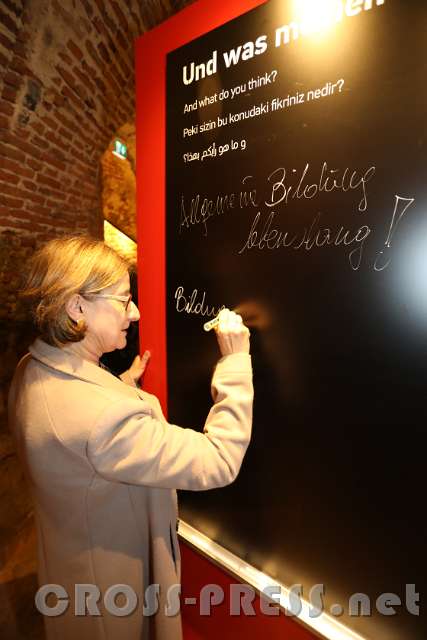 Und was meinen
And what do you think?
Peki sizin bu konudaki fikriniz nedir?
و ما هو رأيكم بهذا؟
Allgemeine Bildung
lebenslang!
Bildung
CROSS-PRESS.net